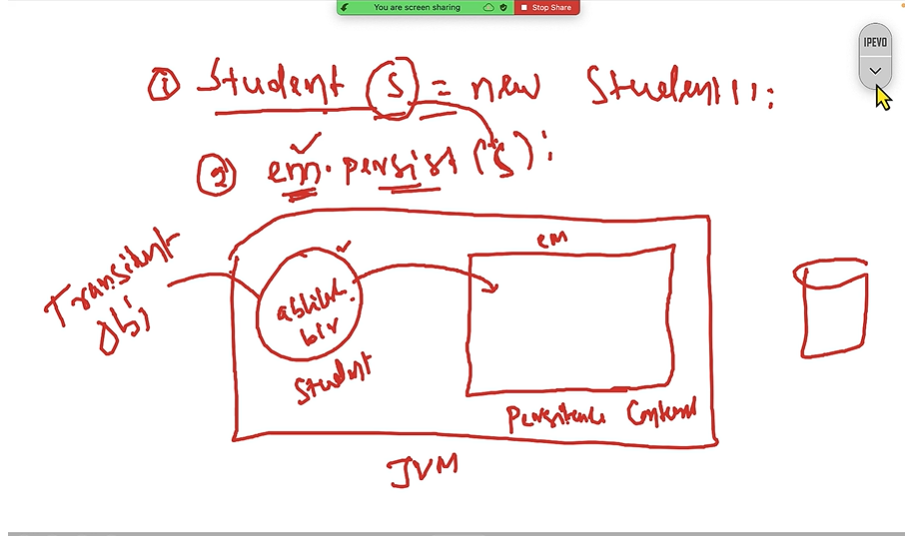 You are screen sharing Stop Share
IPEVO
① Student S = new Student();
② em.persist(S);
Transident
Obj
em
Student
Persitence Context
JVM